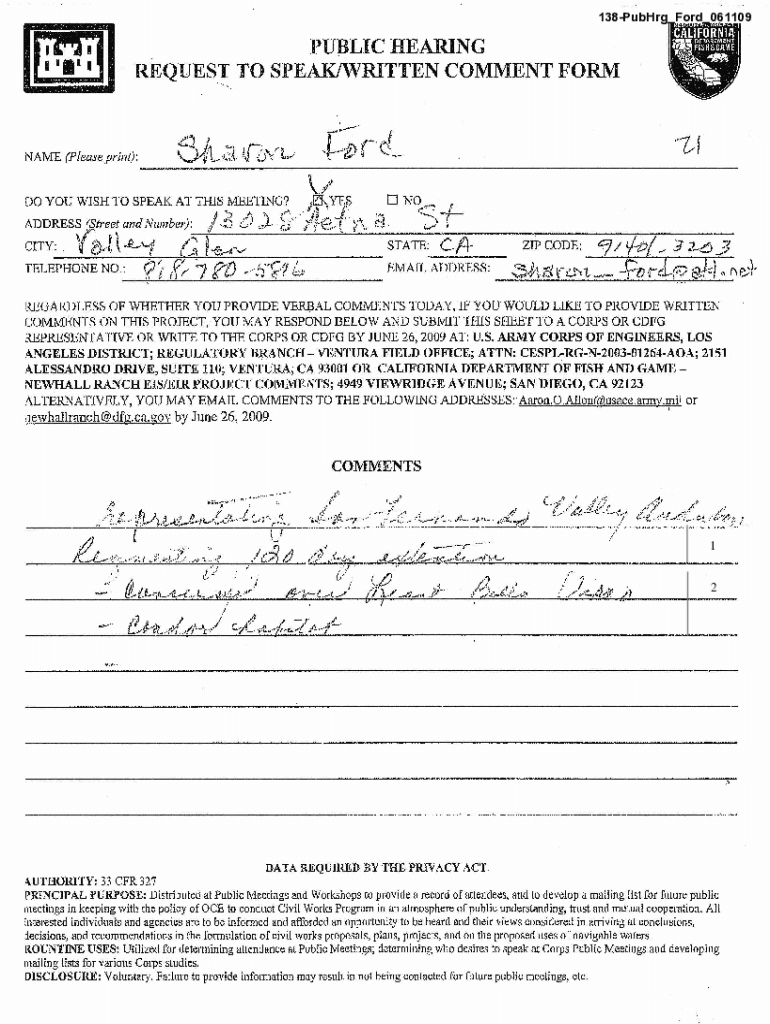 138-PubHrg_Ford_061109
CALIFORNIA
DEPARTMENT
FISH & GAME
PUBLIC HEARING
REQUEST TO SPEAK/WRITTEN COMMENT FORM
NAME (Please print): Sharon Ford 21
DO YOU WISH TO SPEAK AT THIS MEETING? YES NO
ADDRESS (Street and Number): 13028 Aetna St
CITY: Valley Glen STATE: CA ZIP CODE: 91401-3203
TELEPHONE NO.: 818-780-5816 EMAIL ADDRESS: sharon_ford@att.net
REGARDLESS OF WHETHER YOU PROVIDE VERBAL COMMENTS TODAY, IF YOU WOULD LIKE TO PROVIDE WRITTEN
COMMENTS ON THIS PROJECT, YOU MAY RESPOND BELOW AND SUBMIT THIS SHEET TO A CORPS OR CDFG
REPRESENTATIVE OR WRITE TO THE CORPS OR CDFG BY JUNE 26, 2009 AT: U.S. ARMY CORPS OF ENGINEERS, LOS
ANGELES DISTRICT; REGULATORY BRANCH – VENTURA FIELD OFFICE; ATTN: CESPL-RG-N-2003-01264-AOA; 2151
ALESSANDRO DRIVE, SUITE 110; VENTURA, CA 93001 OR CALIFORNIA DEPARTMENT OF FISH AND GAME –
NEWHALL RANCH EIS/EIR PROJECT COMMENTS; 4949 VIEWRIDGE AVENUE; SAN DIEGO, CA 92123
ALTERNATIVELY, YOU MAY EMAIL COMMENTS TO THE FOLLOWING ADDRESSES: Aaron.O.Allen@usace.army.mil or
newhallranch@dfg.ca.gov by June 26, 2009.
COMMENTS
Representating San Fernando Valley Audubon
Requesting 120 day extention 1
- Concerned over Least Bells Vireo 2
- Condor habitat
DATA REQUIRED BY THE PRIVACY ACT
AUTHORITY: 33 CFR 327
PRINCIPAL PURPOSE: Distributed at Public Meetings and Workshops to provide a record of attendees, and to develop a mailing list for future public
meetings in keeping with the policy of OCE to conduct Civil Works Program in an atmosphere of public understanding, trust and mutual cooperation. All
interested individuals and agencies are to be informed and afforded an opportunity to be heard and their views considered in arriving at conclusions,
decisions, and recommendations in the formulation of civil works proposals, plans, projects, and on the proposed uses of navigable waters
ROUNTINE USES: Utilized for determining attendance at Public Meetings; determining who desires to speak at Corps Public Meetings and developing
mailing lists for various Corps studies.
DISCLOSURE: Voluntary. Failure to provide information may result in not being contacted for future public meetings, etc.